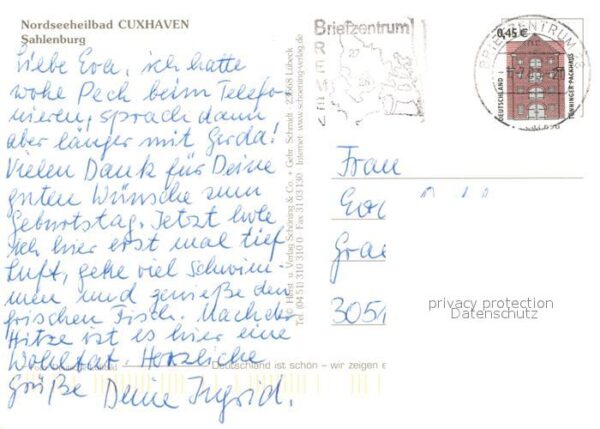 Nordseeheilbad CUXHAVEN
Sahlenburg
Liebe Eva, ich hatte
wohe Pech beim Telefo-
nieren, sprach dann
aber länger mit Gerda!
Vielen Dank für Deine
guten Wünsche zum
Geburtstag. Jetzt hole
ich hier erst mal tief
Luft, gehe viel Schwim-
men und genieße den
frischen Fisch. Nach der
Hitze ist es hier eine
Wohltat. Herzliche
Grüße Deine Ingrid.
Horst u. Verlag Schöning & Co. + Gebr. Schmidt · 23568 Lübeck
Tel. (04 51) 310 310 0 Fax 31 03 130 Internet: www.schoening-verlag.de
Deutschland ist schön – wir zeigen e
Briefzentrum
BREMEN
BRIEFZENTRUM 28
0,45 €
DEUTSCHLAND
TÖNNINGER PACKHAUS
Frau
Gra
3051
privacy protection
Datenschutz